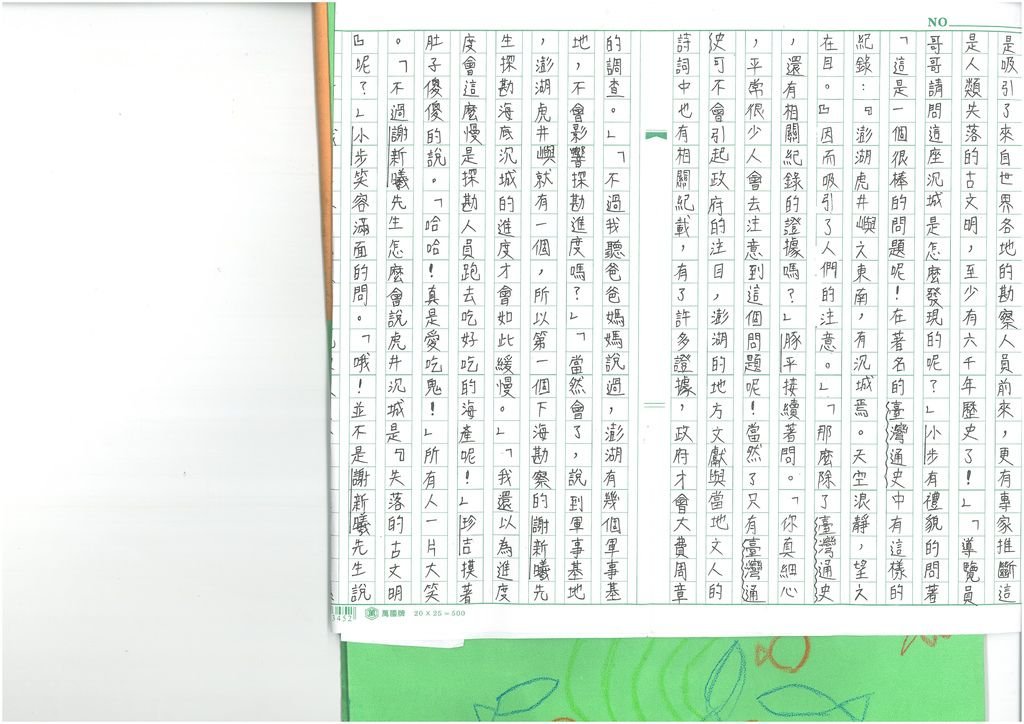 NO
是吸引了來自世界各地的勘察人員前來，更有專家推斷這
是人類失落的古文明，至少有六千年歷史了！」「導覽員
哥哥請問這座沉城是怎麼發現的呢？」小步有禮貌的問著
「這是一個很棒的問題呢！在著名的臺灣通史中有這樣的
紀錄：『澎湖虎井嶼之東南，有沉城焉。天空浪靜，望之
在目。』因而吸引了人們的注意。」「那麼除了臺灣通史
，還有相關紀錄的證據嗎？」豚平接續著問。「你真細心
，平常很少人會去注意到這個問題呢！當然了只有臺灣通
史可不會引起政府的注目，澎湖的地方文獻與當地文人的
詩詞中也有相關紀載，有了許多證據，政府才會大費周章
的調查。」「不過我聽爸爸媽媽說過，澎湖有幾個軍事基
地，不會影響探勘進度嗎？」「當然會了，說到軍事基地
，澎湖虎井嶼就有一個，所以第一個下海勘察的謝新曦先
生探勘海底沉城的進度才會如此緩慢。」「我還以為進度
度會這麼慢是探勘人員跑去吃好吃的海產呢！」珍吉摸著
肚子傻傻的說。「哈哈！真是愛吃鬼！」所有人一片大笑
。「不過謝新曦先生怎麼會說虎井沉城是『失落的古文明
』呢？」小步笑容滿面的問。「哦！並不是謝新曦先生說
3452
萬國牌 20×25=500